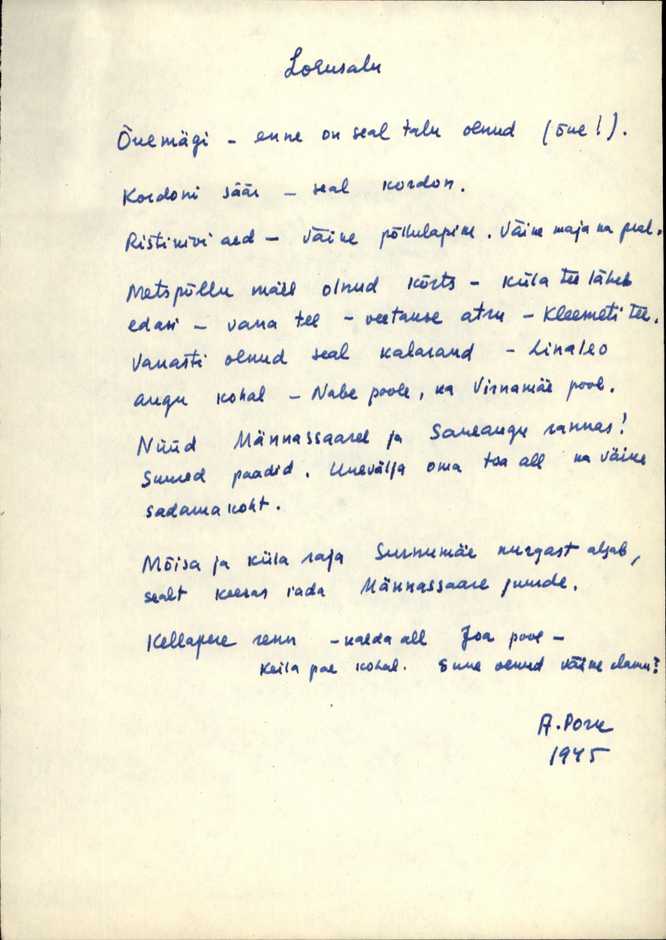 Lohusalu
Õuemägi - enne on seal talu olnud (õue!).
Kordoni säär - seal kordon.
Ristikivi aed - väike põllulapike. Väike maja ka peal.
Metspõllu mäel olnud kõrts - küla tee läheb
edasi - vana tee - veetakse atru - Kleemeti tee.
Vanasti olnud seal kalarand - Linaleo
augu kohal - Nabe poole, ka Virnamäe pool.
Nüüd Männassaarel ja Saueaugu rannas!
Suured paadid. Unevälja oma toa all ka väike
sadama koht.
Mõisa ja küla raja Surnumäe nurgast algab,
sealt keeras rada Männassaare juurde.
Kellapere renn - kalda all Joa pool -
Keila pae kohal. Enne olnud väike
A. Poru
1945